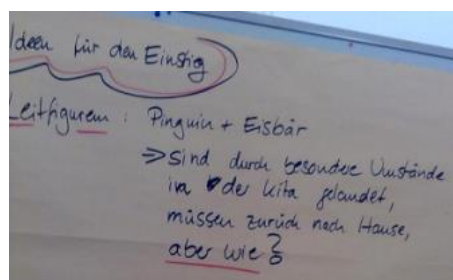 Ideen für den Einstieg
Leitfiguren : Pinguin + Eisbär
=> Sind durch besondere Umstände
in der Kita gelandet,
müssen zurück nach Hause,
aber wie?